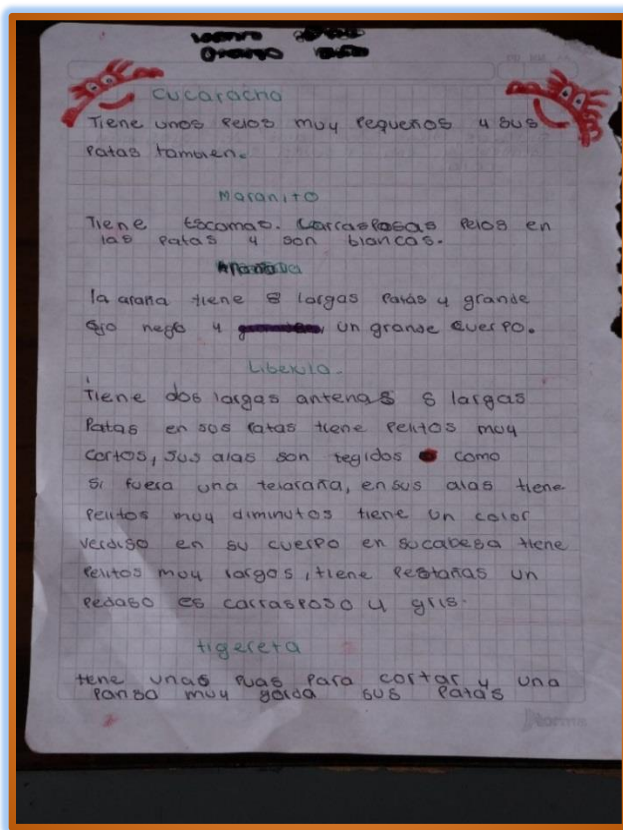 cucaracha
Tiene unos pelos muy pequeños y sus
patas tamvien.
Maranito
Tiene Escamas. carrasposas pelos en
las patas y son blancas.
la araña tiene 8 largas patas y grande
ojo nego y un grande cuerpo.
Libelula.
Tiene dos largas antenas 8 largas
Patas en sos patas tiene pelitos muy
cortos, sus alas son tegidos como
si fuera una telaraña, en sus alas tiene
pelitos moy diminutos tiene un color
verdiso en su cuerpo en su cabesa tiene
pelitos moy largos, tiene pestañas un
pedaso es carrasposo y gris.
tigereta
tene unas puas para cortar y una
pansa muy gorda sus patas
Norma